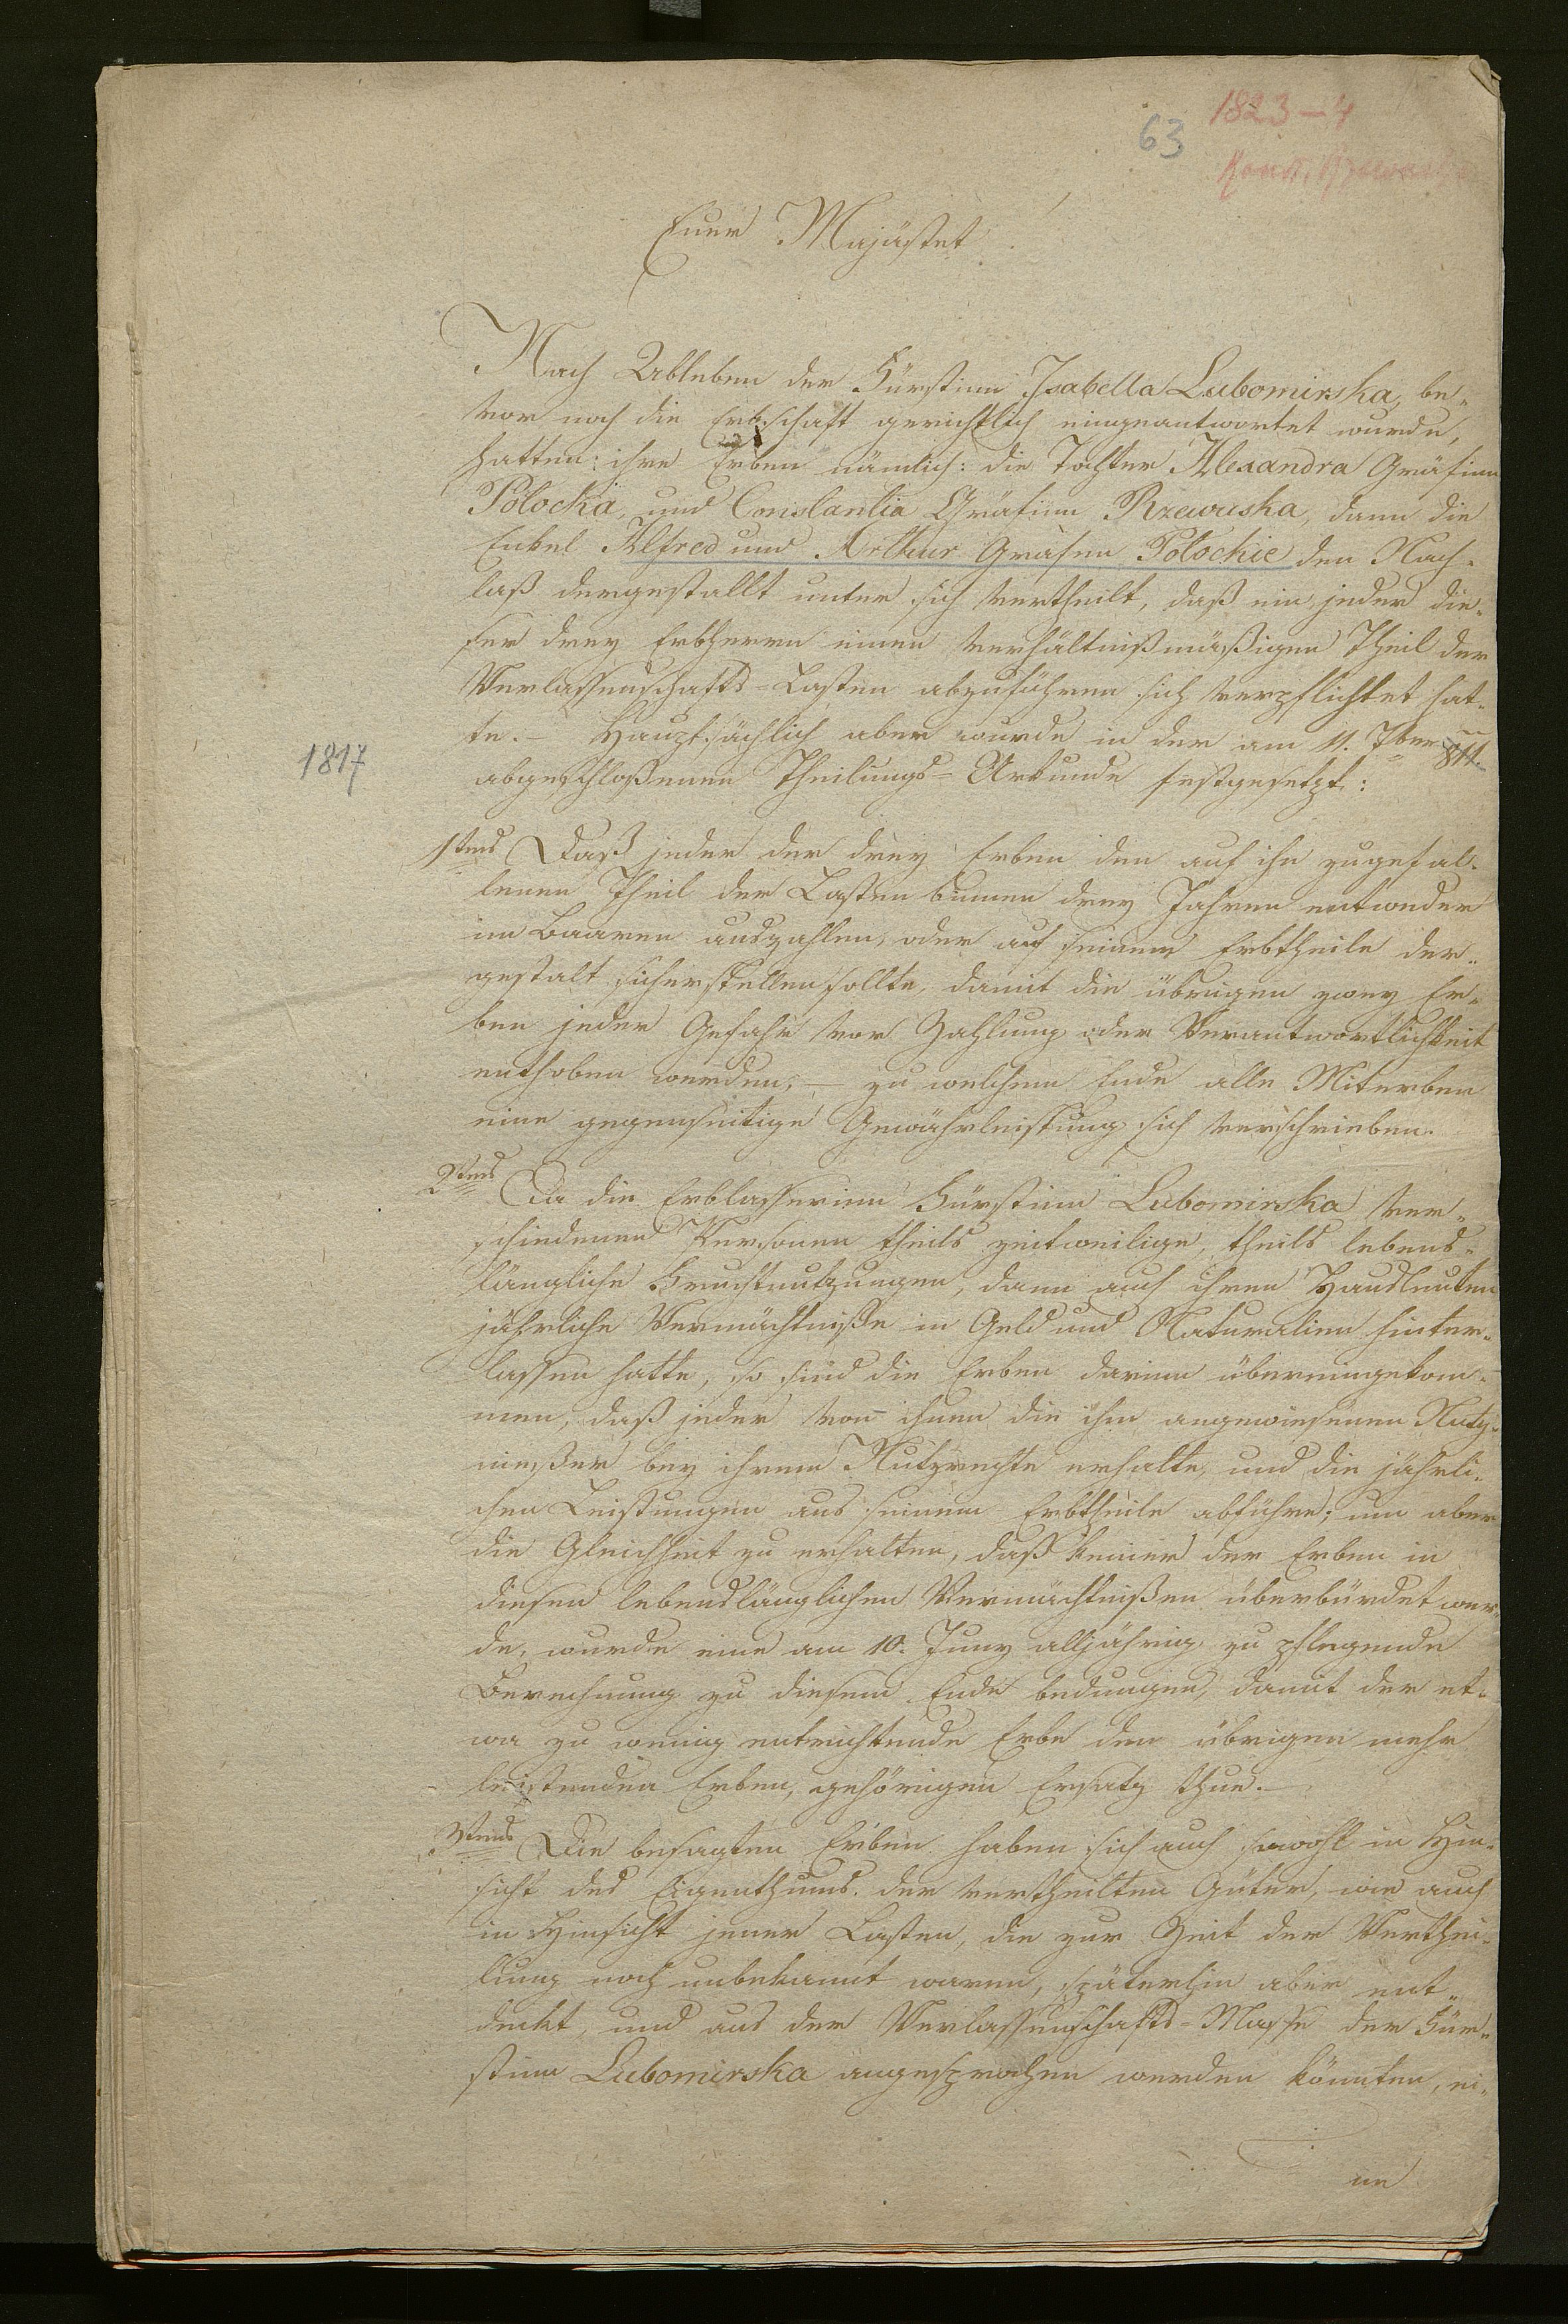 63
1823-4
Euer Majästet!
Nach Ableben der Fürstinn Isabella Lubomirska, be-
vor noch die Erbschaft gerichtlich eingeantwortet wurde,
hatten: ihre Erben nämlich: die Tochter Alexandra Gräfinn
Potocka, und Constantia Gräfinn Rzewuska, dann die
Enkel Alfred und Arthur Grafen Potockie den Nach-
laß dergestallt unter sich vertheilt, daß ein jeder die-
ser drey Erbherrn einen verhältnißmäßigen Theil der
Verlassenschafts-Lasten abzuführen sich verpflichtet hat-
te. – Hauptsächlich aber wurde in der am 11. 7ber 811.
1817
abgeschloßenen Theilungs-Urkunde festgesetzt:
1tens Daß jeder der drey Erben den auf ihn zugefal-
lenen Theil der Lasten binnen drey Jahren entweder
im Baaren auszahlen, oder auf seinem Erbtheile der-
gestalt sicherstellen sollte, damit die übrigen zwey Er-
ben jeder Gefahr vor Zahlung oder Verantwortlichkeit
enthoben werden; – zu welchem Ende alle Miterben
eine gegenseitige Gewährleistung sich verschrieben.
2tens Da die Erblasserinn Fürstinn Lubomirska ver-
schiedenen Personen theils zeitweilige, theils lebens-
längliche Fruchtnutzungen, dann auch ihren Hausleuten
jährliche Vermächtniße in Geld und Naturalien hinter-
lassen hatte, so sind die Erben darinn übereingekom-
men, daß jeder von ihnen die ihm angewiesenen Nutz-
nießer bey ihrem Nutzrechte erhalte, und die jährli-
chen Leistungen aus seinem Erbtheile abführe; um aber
die Gleichheit zu erhalten, daß keiner der Erben in
diesen lebenslänglichen Vermächtnißen überbürdet wer-
de, wurde eine am 10. Juny alljährig zu pflegende
Berechnung zu diesem Ende bedungen, damit der et-
wa zu wenig entrichtende Erbe den übrigen mehr
leistenden Erben, gehörigen Ersatz thue. –
3tens Die besagten Erben haben sich auch sowohl in Hin-
sicht des Eigenthums der vertheilten Güter, wie auch
in Hinsicht jener Lasten, die zur Zeit der Verthei-
lung noch unbekannt waren, späterhin aber ent-
deckt, und aus der Verlassenschafts-Masse der Für-
stinn Lubomirska angesprochen werden könnten, ei-
ne